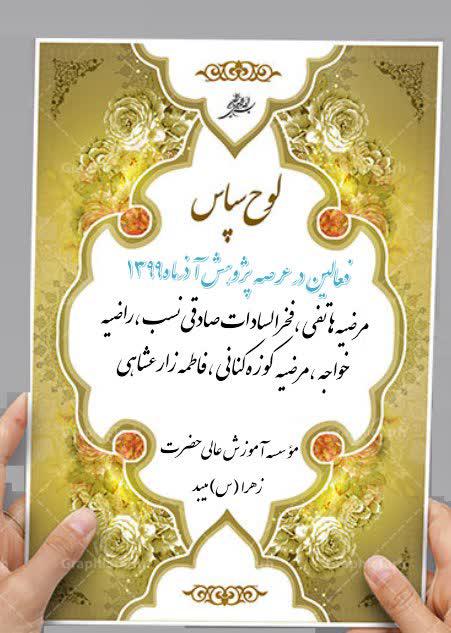 لوح سپاس
فعالین در عرصه پژوهش آذرماه ۱۳۹۹
مرضیه هاتفی، فخرالسادات صادقی نسب، راضیه
خواجه، مرضیه کوزه کنانی، فاطمه زارعشاهی
مؤسسه آموزش عالی حضرت
زهرا (س) میبد